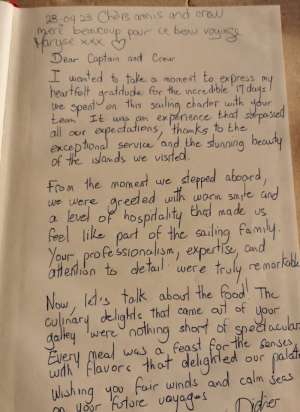 28-04 23 Chers amis and crew
merci beaucoup pour ce beau voyage
Maryse xxx ♡
Dear Captain and Crew
I wanted to take a moment to express my
heartfelt gratitude for the incredible 17 days
we spent on this sailing charter with your
team. It was an experience that surpassed
all our expectations, thanks to the
exceptional service and the stunning beauty
of the islands we visited.
From the moment we stepped aboard,
we were greeted with warm smile and
a level of hospitality that made us
feel like part of the sailing family.
Your professionalism, expertise, and
attention to detail were truly remarkable
Now, let's talk about the food! The
culinary delights that came out of your
galley were nothing short of spectacular
Every meal was a feast for the senses
with flavors that delighted our palate
Wishing you fair winds and calm seas
on your future voyages Didier